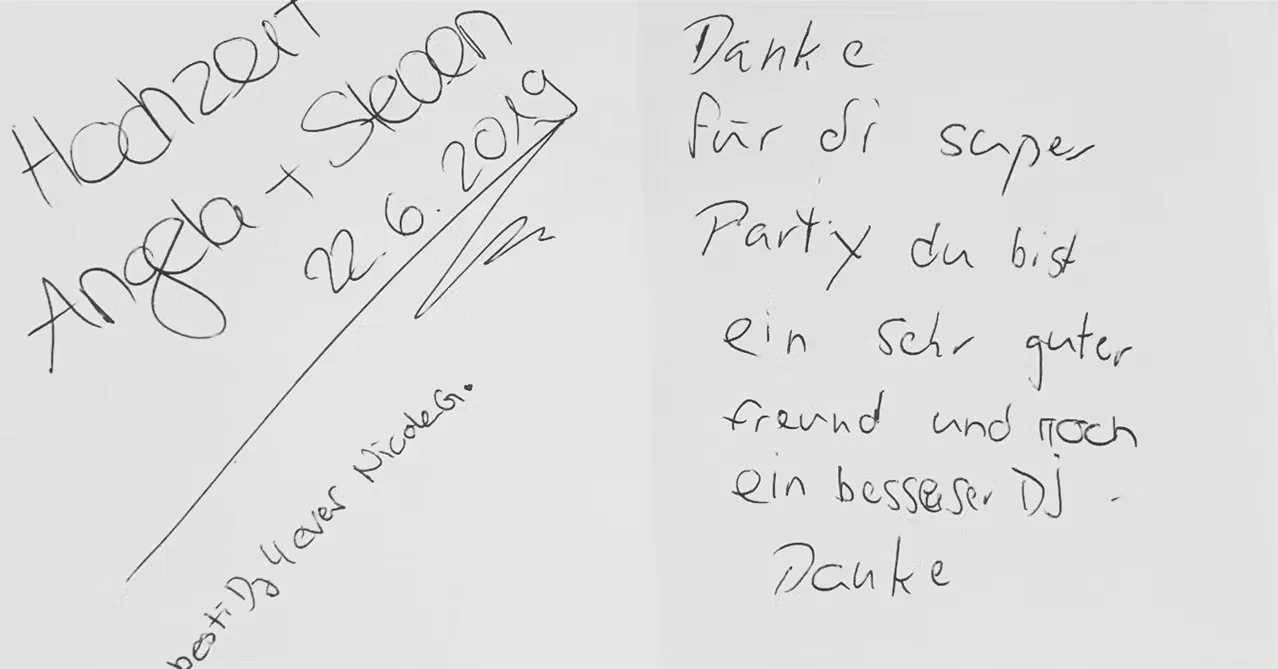 Hochzeit
Angela + Steven
22.6.2019
besti Dj 4 ever Nicole G.
Danke
für di super
Party du bist
ein sehr guter
freund und noch
ein besserer DJ
Danke